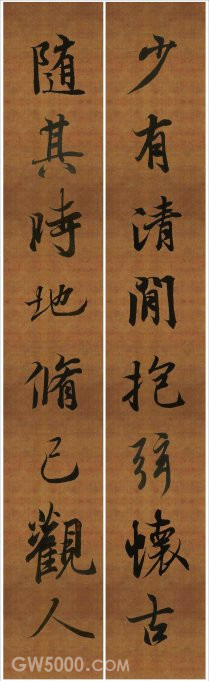 少有清閒抱弦懷古
隨其時地脩己觀人
GW5000.com